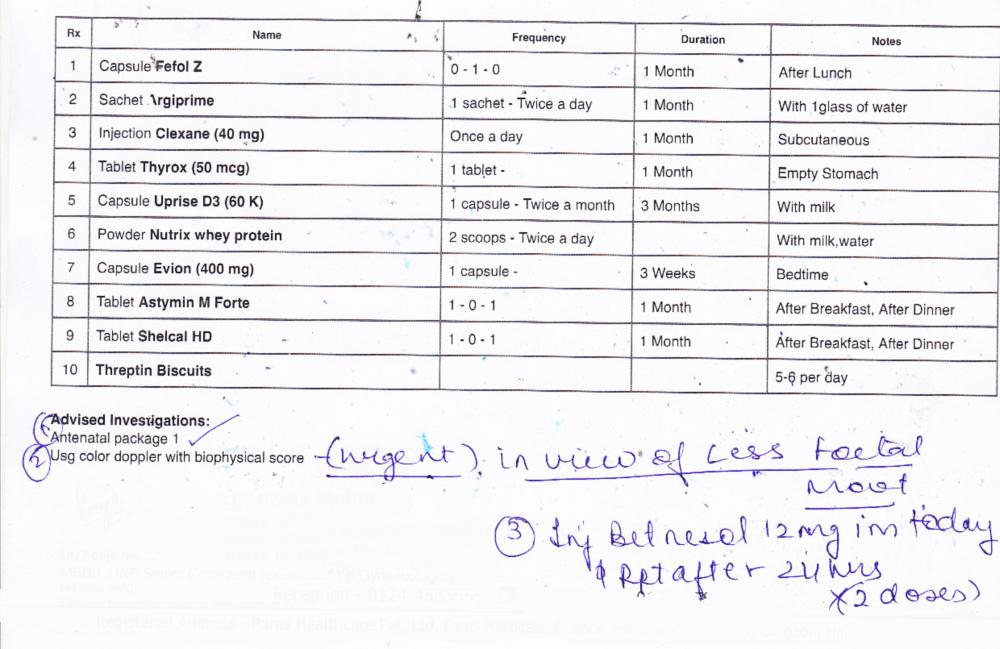 Rx Name Frequency Duration Notes
1 Capsule Fefol Z 0 - 1 - 0 1 Month After Lunch
2 Sachet Argiprime 1 sachet - Twice a day 1 Month With 1glass of water
3 Injection Clexane (40 mg) Once a day 1 Month Subcutaneous
4 Tablet Thyrox (50 mcg) 1 tablet - 1 Month Empty Stomach
5 Capsule Uprise D3 (60 K) 1 capsule - Twice a month 3 Months With milk
6 Powder Nutrix whey protein 2 scoops - Twice a day With milk,water
7 Capsule Evion (400 mg) 1 capsule - 3 Weeks Bedtime
8 Tablet Astymin M Forte 1 - 0 - 1 1 Month After Breakfast, After Dinner
9 Tablet Shelcal HD 1 - 0 - 1 1 Month After Breakfast, After Dinner
10 Threptin Biscuits 5-6 per day
① Advised Investigations:
Antenatal package 1 ✓
② Usg color doppler with biophysical score - (urgent) in view of Less foetal
Movt
③ Inj Betnesol 12mg im today
Rpt after 24 hrs
x(2 doses)